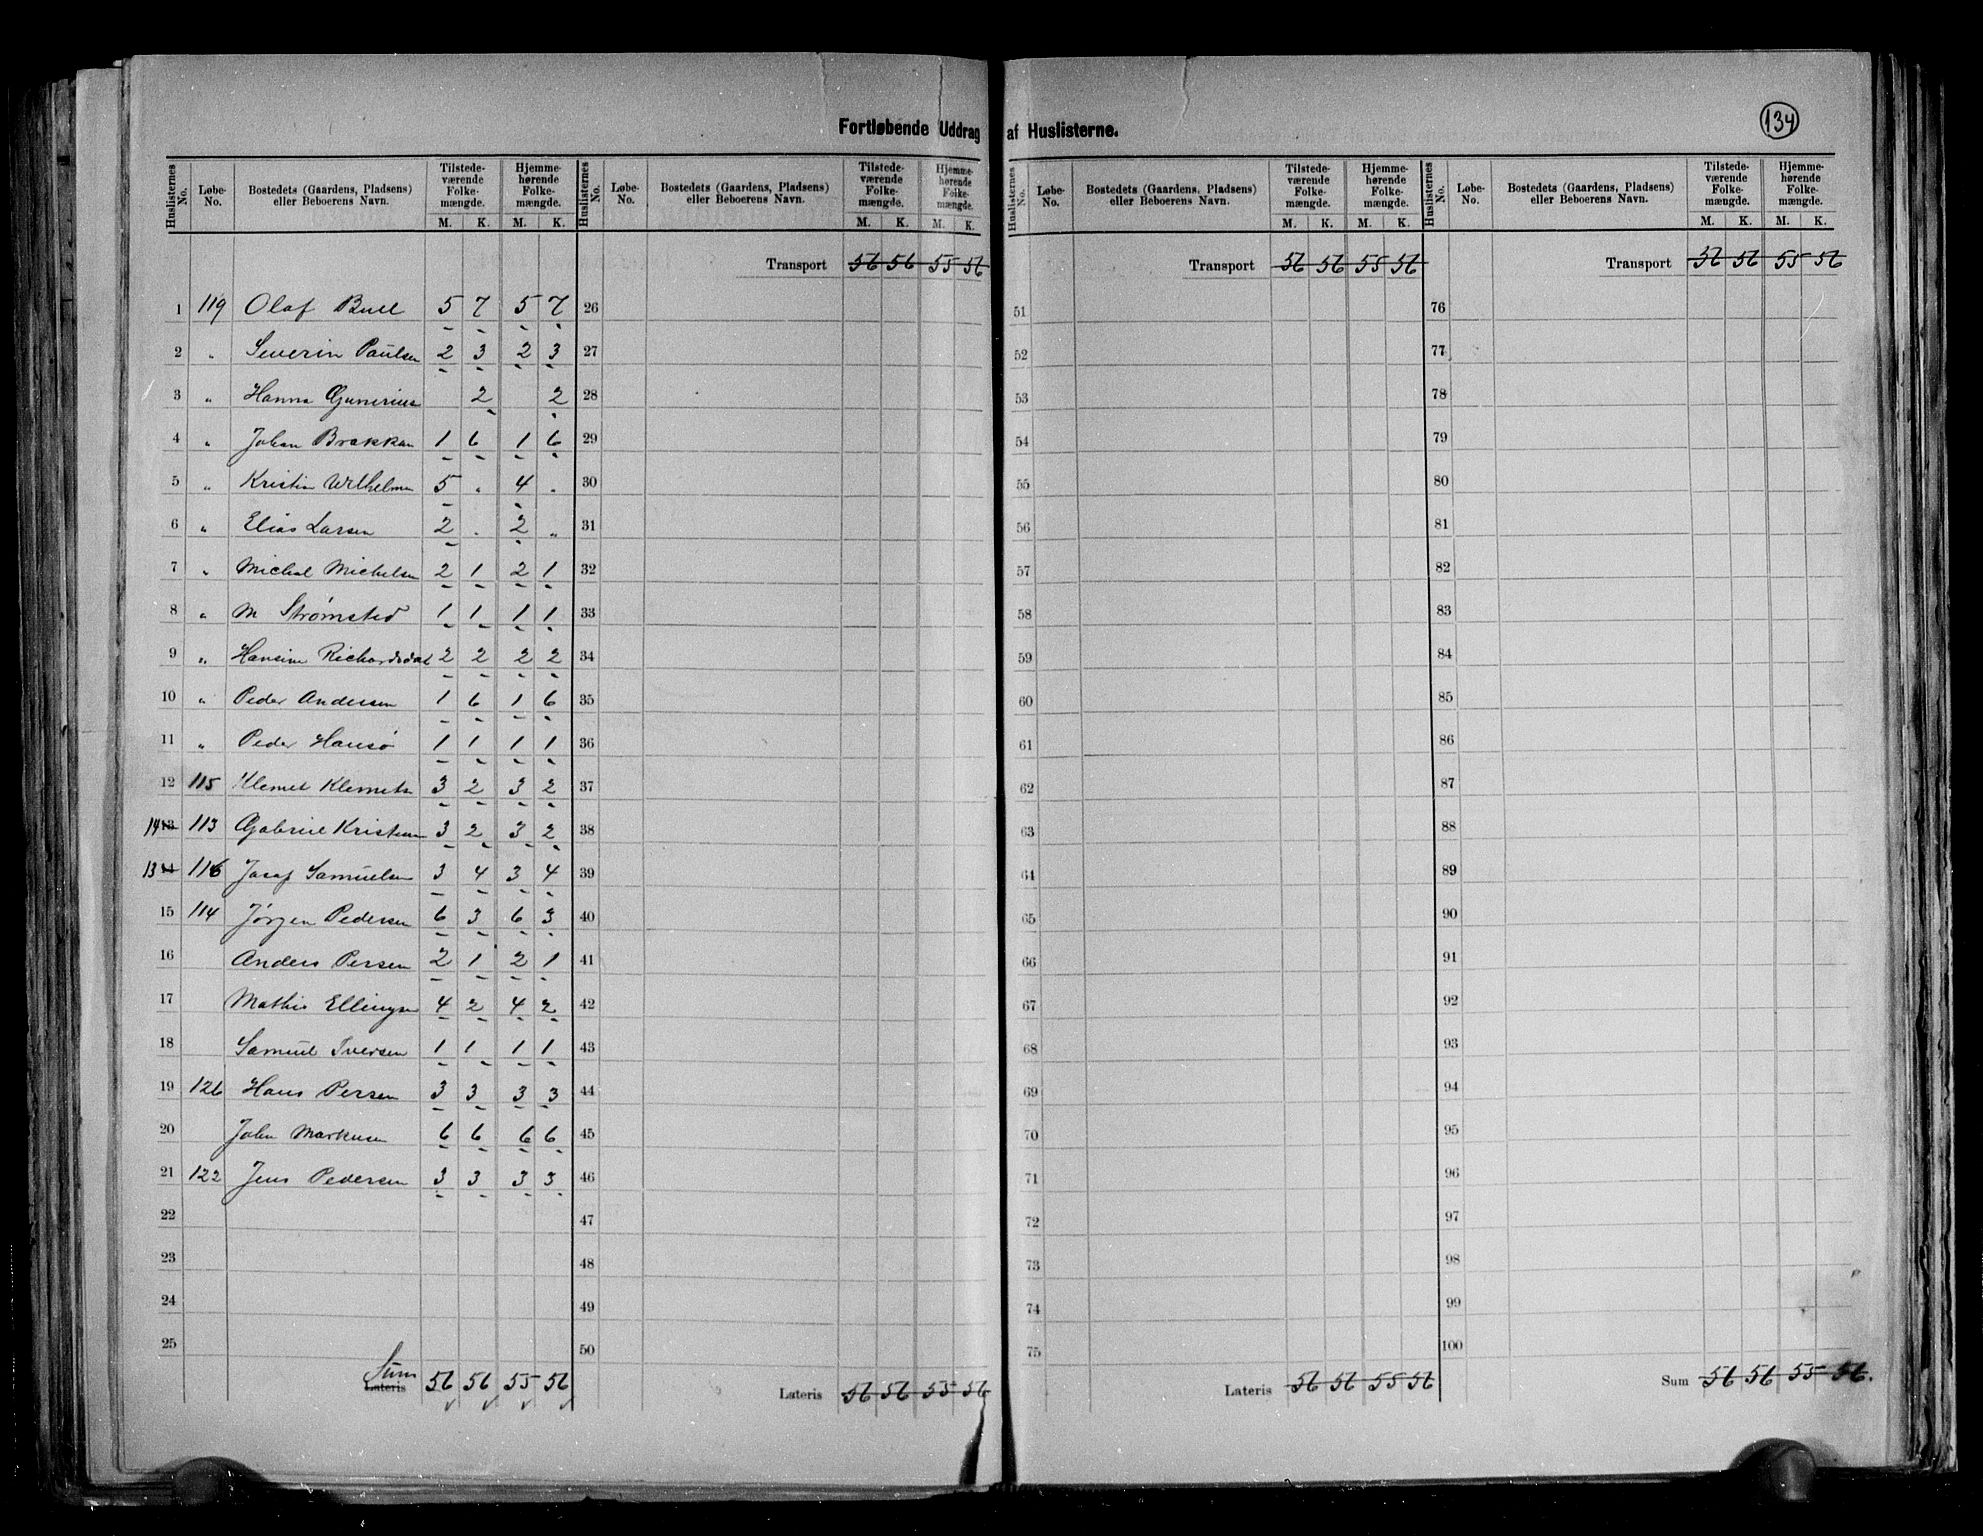 Fortløbende Uddrag af Huslisterne.
134
Huslisternes No. Løbe-No. Bostedets (Gaardens, Pladsens) eller Beboerens Navn. Tilstedeværende Folkemængde. M. K. Hjemmehørende Folkemængde. M. K.
Huslisternes No. Løbe-No. Bostedets (Gaardens, Pladsens) eller Beboerens Navn. Tilstedeværende Folkemængde. M. K. Hjemmehørende Folkemængde. M. K.
Huslisternes No. Løbe-No. Bostedets (Gaardens, Pladsens) eller Beboerens Navn. Tilstedeværende Folkemængde. M. K. Hjemmehørende Folkemængde. M. K.
Huslisternes No. Løbe-No. Bostedets (Gaardens, Pladsens) eller Beboerens Navn. Tilstedeværende Folkemængde. M. K. Hjemmehørende Folkemængde. M. K.
1 119 Olaf Bull 5 7 5 7
2 " Severin Paulsen 2 3 2 3
3 " Hanna Gunerius 2 2
4 " Johan Brækkan 1 6 1 6
5 " Kristian Wilhelmsen 5 " 4 "
6 " Elias Larsen 2 " 2 "
7 " Michal Michelsen 2 1 2 1
8 " M Strømsted 1 1 1 1
9 " Hansine Richardsdat 2 2 2 2
10 " Peder Andersen 1 6 1 6
11 " Peder Hansø 1 1 1 1
12 115 Klemet Klemets 3 2 3 2
14 13 113 Gabriel Kristian 3 2 3 2
13 14 116 Josaf Samuelsen 3 4 3 4
15 114 Jørgen Pedersen 6 3 6 3
16 Anders Persen 2 1 2 1
17 Mathis Ellingsen 4 2 4 2
18 Samuel Iversen 1 1 1 1
19 126 Hans Persen 3 3 3 3
20 John Markusen 6 6 6 6
21 122 Jens Pedersen 3 3 3 3
22
23
24
25
Sum
Lateris 56 56 55 56
Transport 56 56 55 56
26
27
28
29
30
31
32
33
34
35
36
37
38
39
40
41
42
43
44
45
46
47
48
49
50
Lateris 56 56 55 56
Transport 56 56 55 56
51
52
53
54
55
56
57
58
59
60
61
62
63
64
65
66
67
68
69
70
71
72
73
74
75
Lateris 56 56 55 56
Transport 56 56 55 56
76
77
78
79
80
81
82
83
84
85
86
87
88
89
90
91
92
93
94
95
96
97
98
99
100
Sum 56 56 55 56.